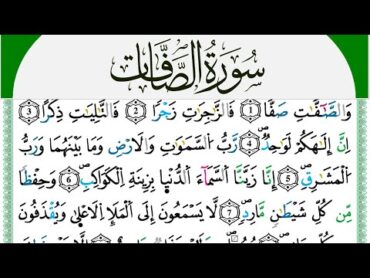 سُورَةُ الصَّافَّات
وَالصّٰٓفّٰتِ صَفًّا ۙ﴿1﴾ فَالزّٰجِرٰتِ زَجْرًا ۙ﴿2﴾ فَالتّٰلِيٰتِ ذِكْرًا ۙ﴿3﴾
اِنَّ اِلٰهَكُمْ لَوَاحِدٌ ؕ﴿4﴾ رَبُّ السَّمٰوٰتِ وَالْاَرْضِ وَمَا بَيْنَهُمَا وَرَبُّ
الْمَشَارِقِ ؕ﴿5﴾ اِنَّا زَيَّنَّا السَّمَآءَ الدُّنْيَا بِزِيْنَةِ الْكَوَاكِبِ ۙ﴿6﴾ وَحِفْظًا
مِّنْ كُلِّ شَيْطٰنٍ مَّارِدٍ ۚ﴿7﴾ لَا يَسَّمَّعُوْنَ اِلَى الْمَلَاِ الْاَعْلٰى وَيُقْذَفُوْنَ